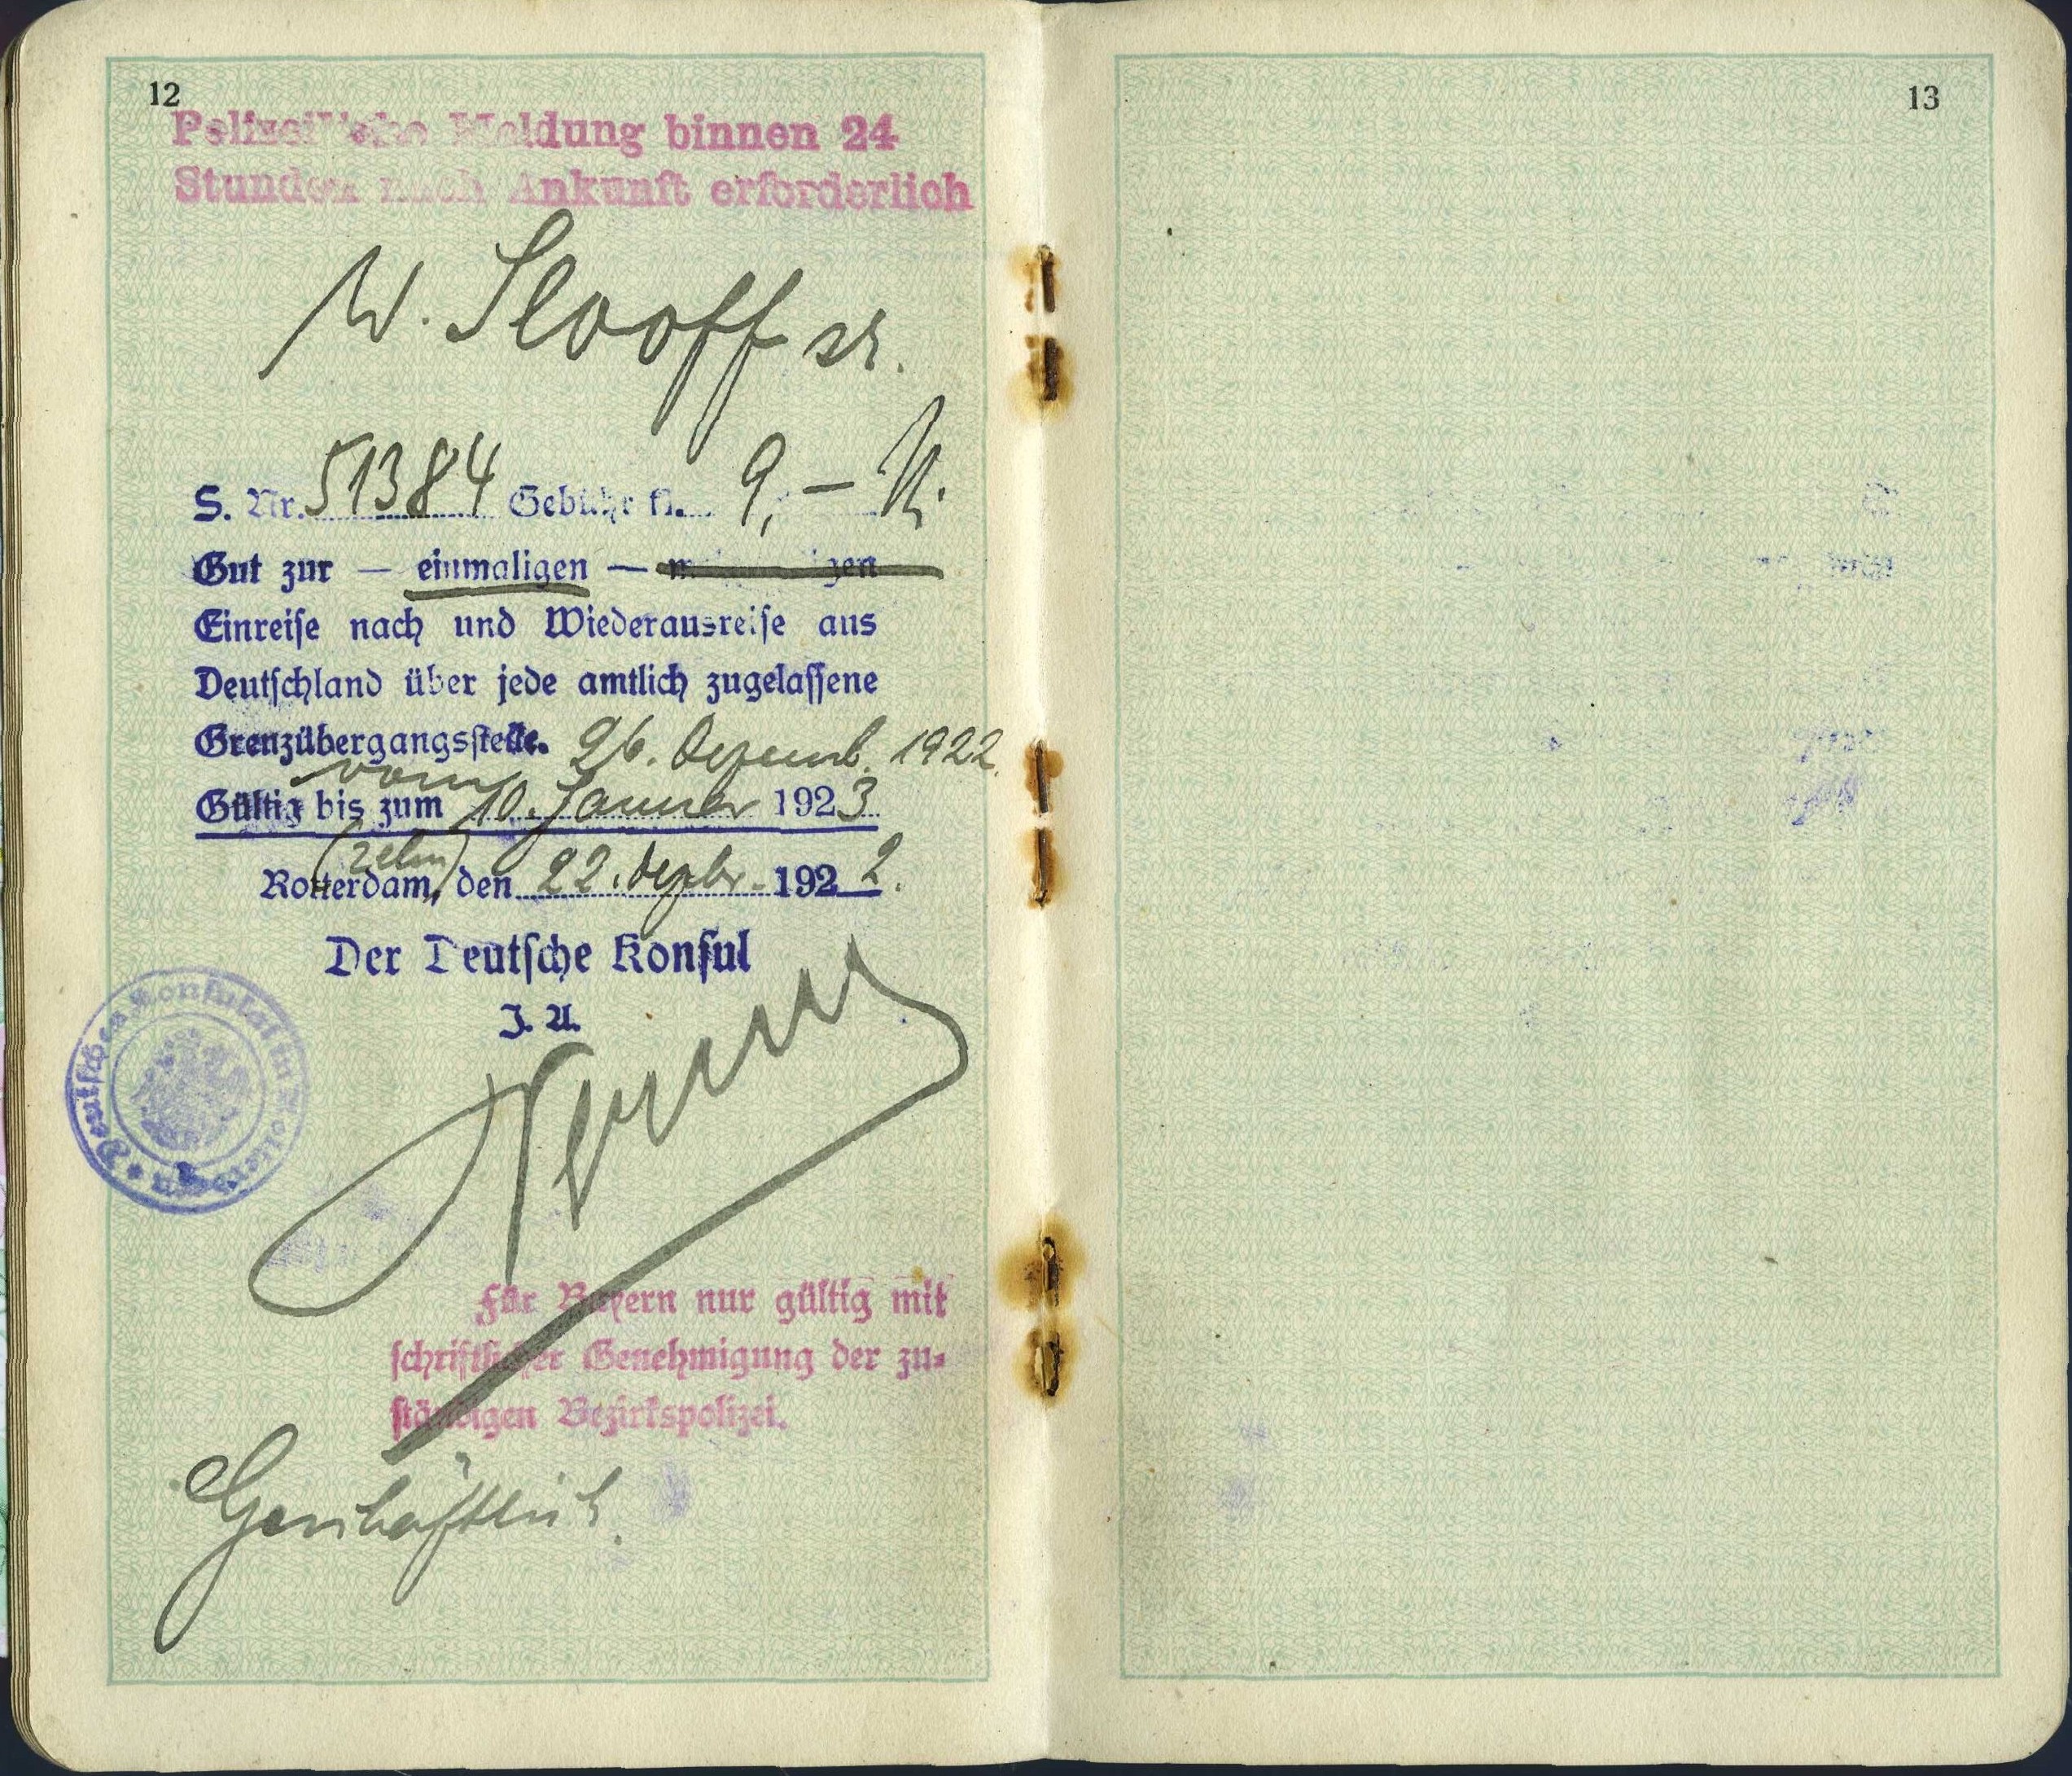 12
Polizeiliche Meldung binnen 24
Stunden nach Ankunft erforderlich
W. Slooff sr.
S. Nr. 51384 Gebühr fl. 9,–
Gut zur — einmaligen —
Einreise nach und Wiederausreise aus
Deutschland über jede amtlich zugelassene
Grenzübergangsstelle. 26. Dezemb. 1922.
vom
Gültig bis zum 10. Januar 1923
(zehn)
Rotterdam, den 22. Dezbr. 1922.
Der Deutsche Konsul
J. A.
Deutsches Konsulat in Rotterdam
Für Bayern nur gültig mit
schriftlicher Genehmigung der zu-
ständigen Bezirkspolizei.
Geschäftlich.
13